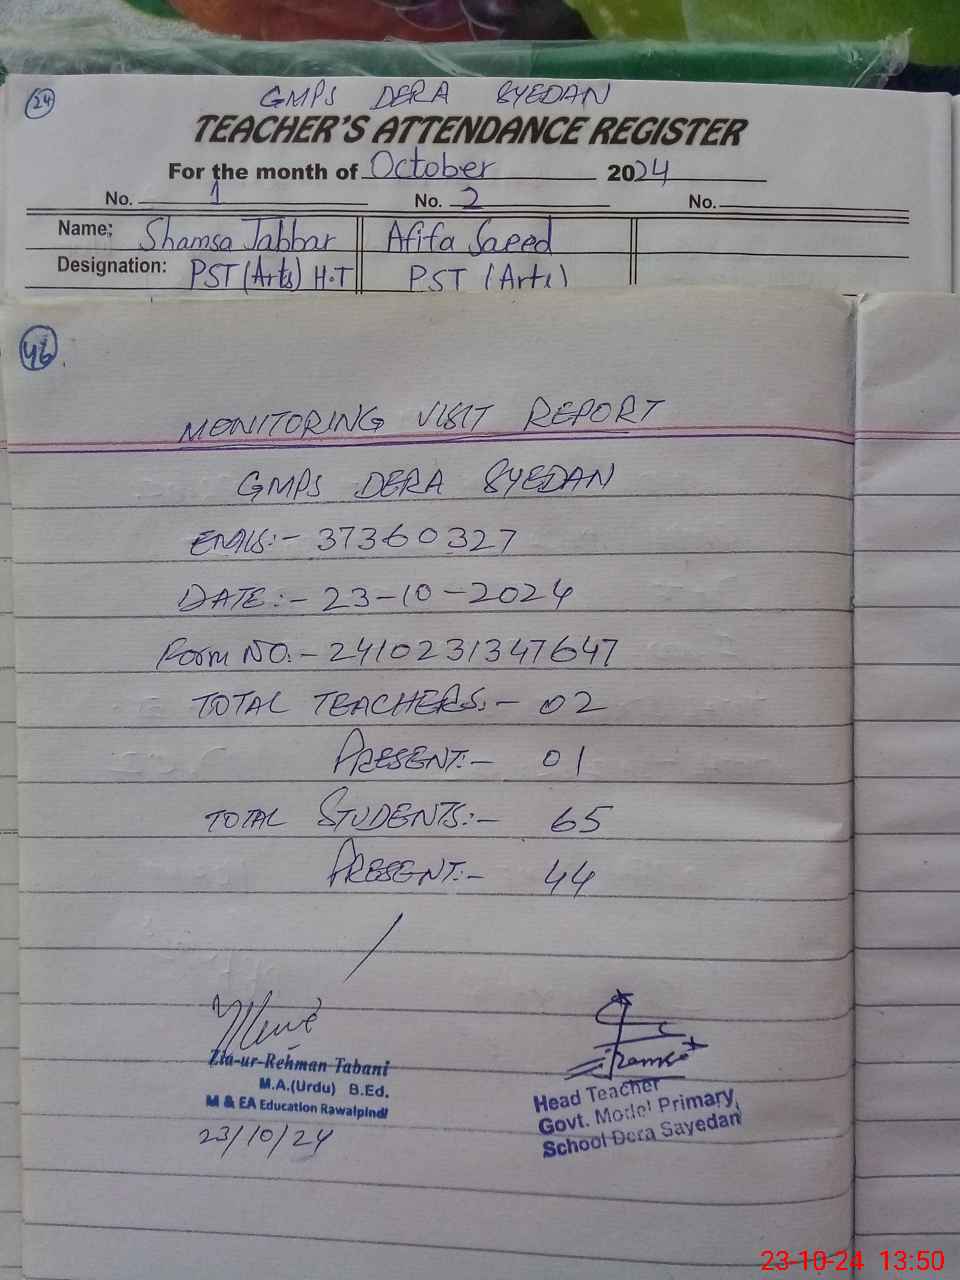 24
GMPS DERA SYEDAN
TEACHER'S ATTENDANCE REGISTER
For the month of October 2024
No. 1 No. 2 No.
Name: Shamsa Jabbar Afifa Saeed
Designation: PST (Arts) H.T PST (Arts)
46
MONITORING VISIT REPORT
GMPS DERA SYEDAN
EMIS:- 37360327
DATE:- 23-10-2024
Form NO.- 2410231347647
TOTAL TEACHERS:- 02
PRESENT:- 01
TOTAL STUDENTS:- 65
PRESENT:- 44
Zia-ur-Rehman Tabani
M.A.(Urdu) B.Ed.
M & EA Education Rawalpindi
23/10/24
Head Teacher
Govt. Model Primary,
School Dera Sayedan
23-10-24 13:50